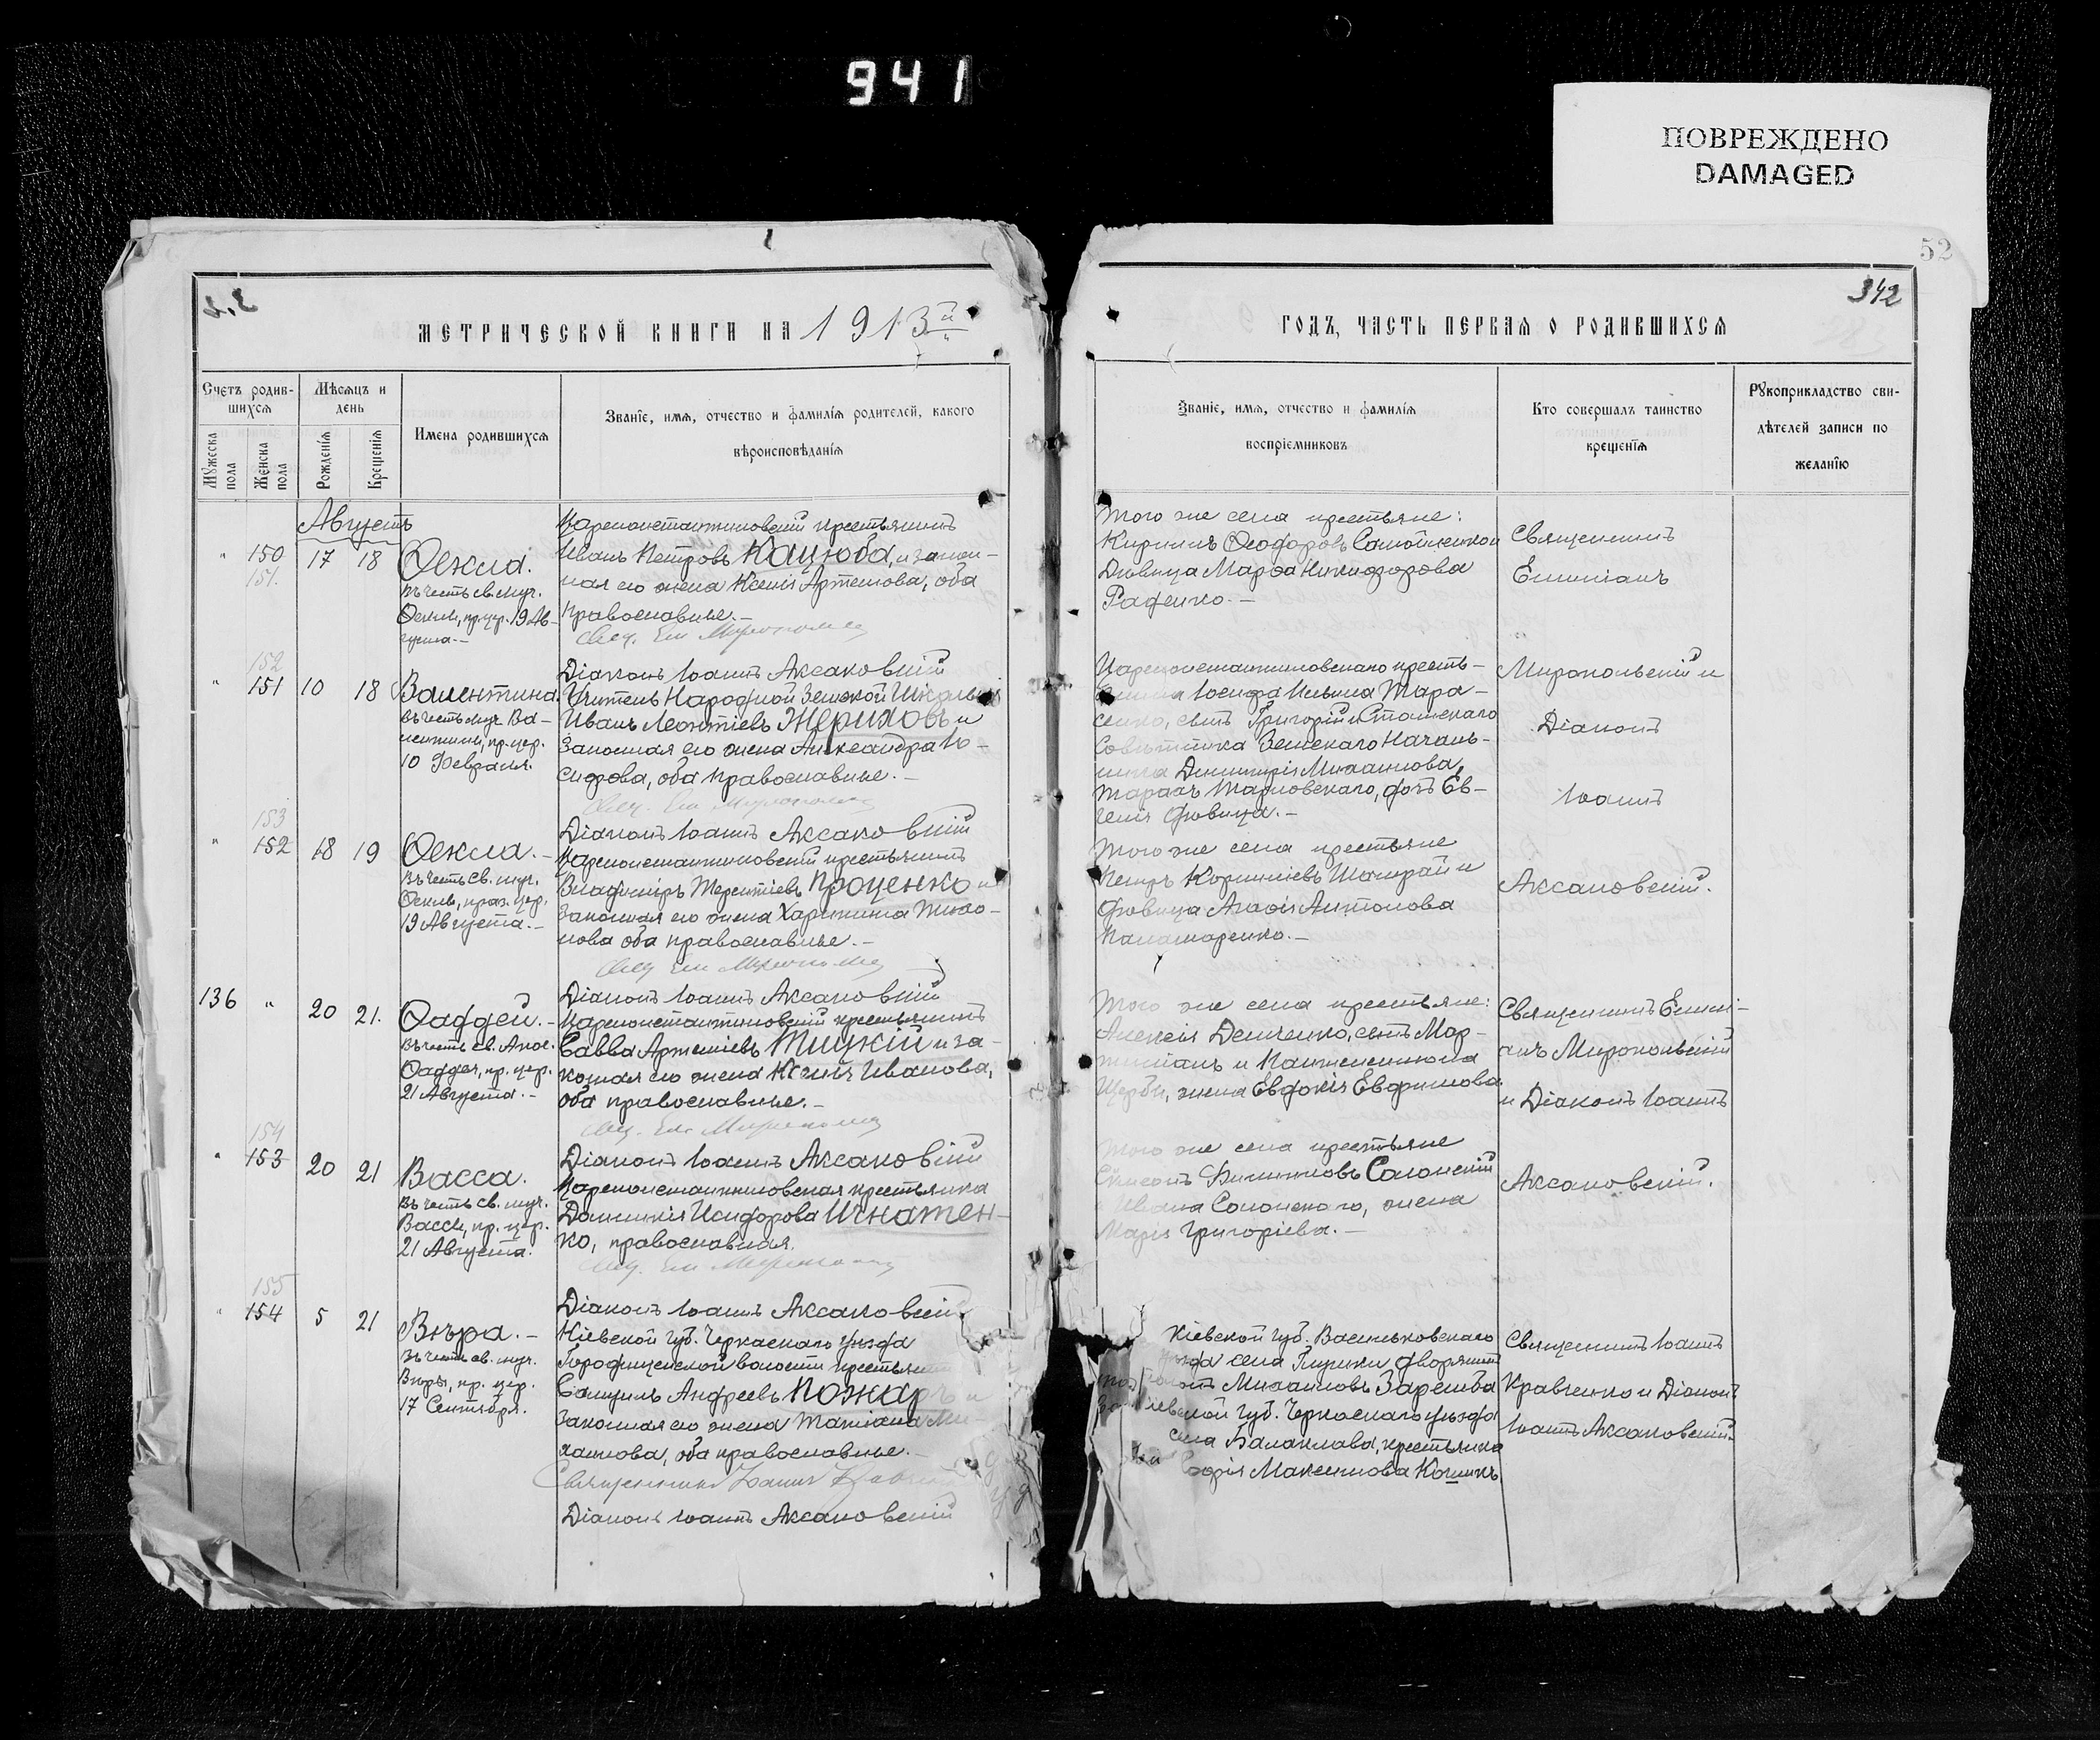 941
ПОВРЕЖДЕНО
DAMAGED
52
342
МЕТРИЧЕСКОЙ КНИГИ НА 1913й
ГОДЪ, ЧАСТЬ ПЕРВАЯ О РОДИВШИХСЯ
Счетъ родив-
шихся
Мужеска пола
Женска пола
Мѣсяцъ и
день
Рожденія
Крещенія
Имена родившихся
Званіе, имя, отчество и фамилія родителей, какого
вѣроисповѣданія
Званіе, имя, отчество и фамилія
воспріемниковъ
Кто совершалъ таинство
крещенія
Рукоприкладство сви-
дѣтелей записи по
желанію
Августъ
" 150 17 18
151.
Ѳекла.
Въ честь св. муч.
Ѳеклы, пр. цер. 19 Ав-
густа.-
Цареконстантиновскій крестьянинъ
Иванъ Петровъ Кацюба, и закон-
ная его жена Ксенія Артемова, оба
православные.-
Того же села крестьяне:
Кириллъ Ѳеодоровъ Самойленко и
Дѣвица Марѳа Никифорова
Раденко.-
Священникъ
Емиліанъ
152
" 151 10 18
Валентина.
Въ честь муч. Ва-
лентины, пр. цер.
10 Февраля.
Діаконъ Іоаннъ Аксаковскій
Учитель Народной Земской Школы
Иванъ Леонтіевъ Жериховъ и
Законная его жена Александра Іо-
сифова, оба православные.-
Цареконстантиновскаго кресть-
Іосифа Ильина Тара-
сенко, сынъ Григорій и Статскаго
Совѣтника Земскаго Началь-
ника Димитрія Михаилова
Тарновскаго, дочь Ев-
генія дѣвица.-
Миропольскій и
Діаконъ
Іоаннъ
153
" 152 18 19
Ѳекла.-
Въ честь св. муч.
Ѳеклы, праз. цер.
19 Августа.-
Діаконъ Іоаннъ Аксаковскій
Цареконстантиновскій крестьянинъ
Владиміръ Терентіевъ Проценко и
Законная его жена Харитина Тихо-
нова оба православные.-
Того же села крестьяне
Петръ Корниліевъ Шамрай и
дѣвица Агаѳія Антонова
Паламаренко.-
Аксаковскій.
136 " 20 21.
Ѳаддей.-
Въ честь св. Апос.
Ѳаддея, пр. цер.
21 Августа.-
Діаконъ Іоаннъ Аксаковскій
Цареконстантиновскій крестьянинъ
Савва Артеміевъ Тицкій и за-
конная его жена Ксенія Иванова,
оба православные.-
Того же села крестьяне:
Алексія Демченко, сынъ Мар-
тиніанъ и Пантелеимона
Щербы, жена Евдокія Евфимова
Священникъ Емилі-
анъ Миропольскій
и Діаконъ Іоаннъ
154
" 153 20 21
Васса.
Въ честь св. муч.
Вассы, пр. цер.
21 Августа.
Діаконъ Іоаннъ Аксаковскій
Цареконстантиновская крестьянка
Домникія Исидорова Игнатен-
ко, православная.
Того же села крестьяне
Филипповъ Солонскій
Ивана Солонскаго, жена
Марія Григоріева.-
Аксаковскій.
155
" 154 5 21
Вѣра.-
Въ честь св. муч.
Вѣры, пр. цер.
17 Сентября.
Діаконъ Іоаннъ Аксаковскій
Кіевской губ. Черкаскаго уѣзда
Городищенской волости крестьянинъ
Самуилъ Андреевъ Пожаръ и
Законная его жена Татіана Ми-
хаилова, оба православные.-
Священникъ Іоаннъ
Діаконъ Іоаннъ Аксаковскій
Кіевской губ. Васильковскаго
уѣзда села дворянинъ
Михаиловъ Заремба
Кіевской губ. Черкаскаго уѣзда
села Балаклава, крестьянка
Софія Максимова
Священникъ Іоаннъ
Кравченко и Діаконъ
Іоаннъ Аксаковскій.